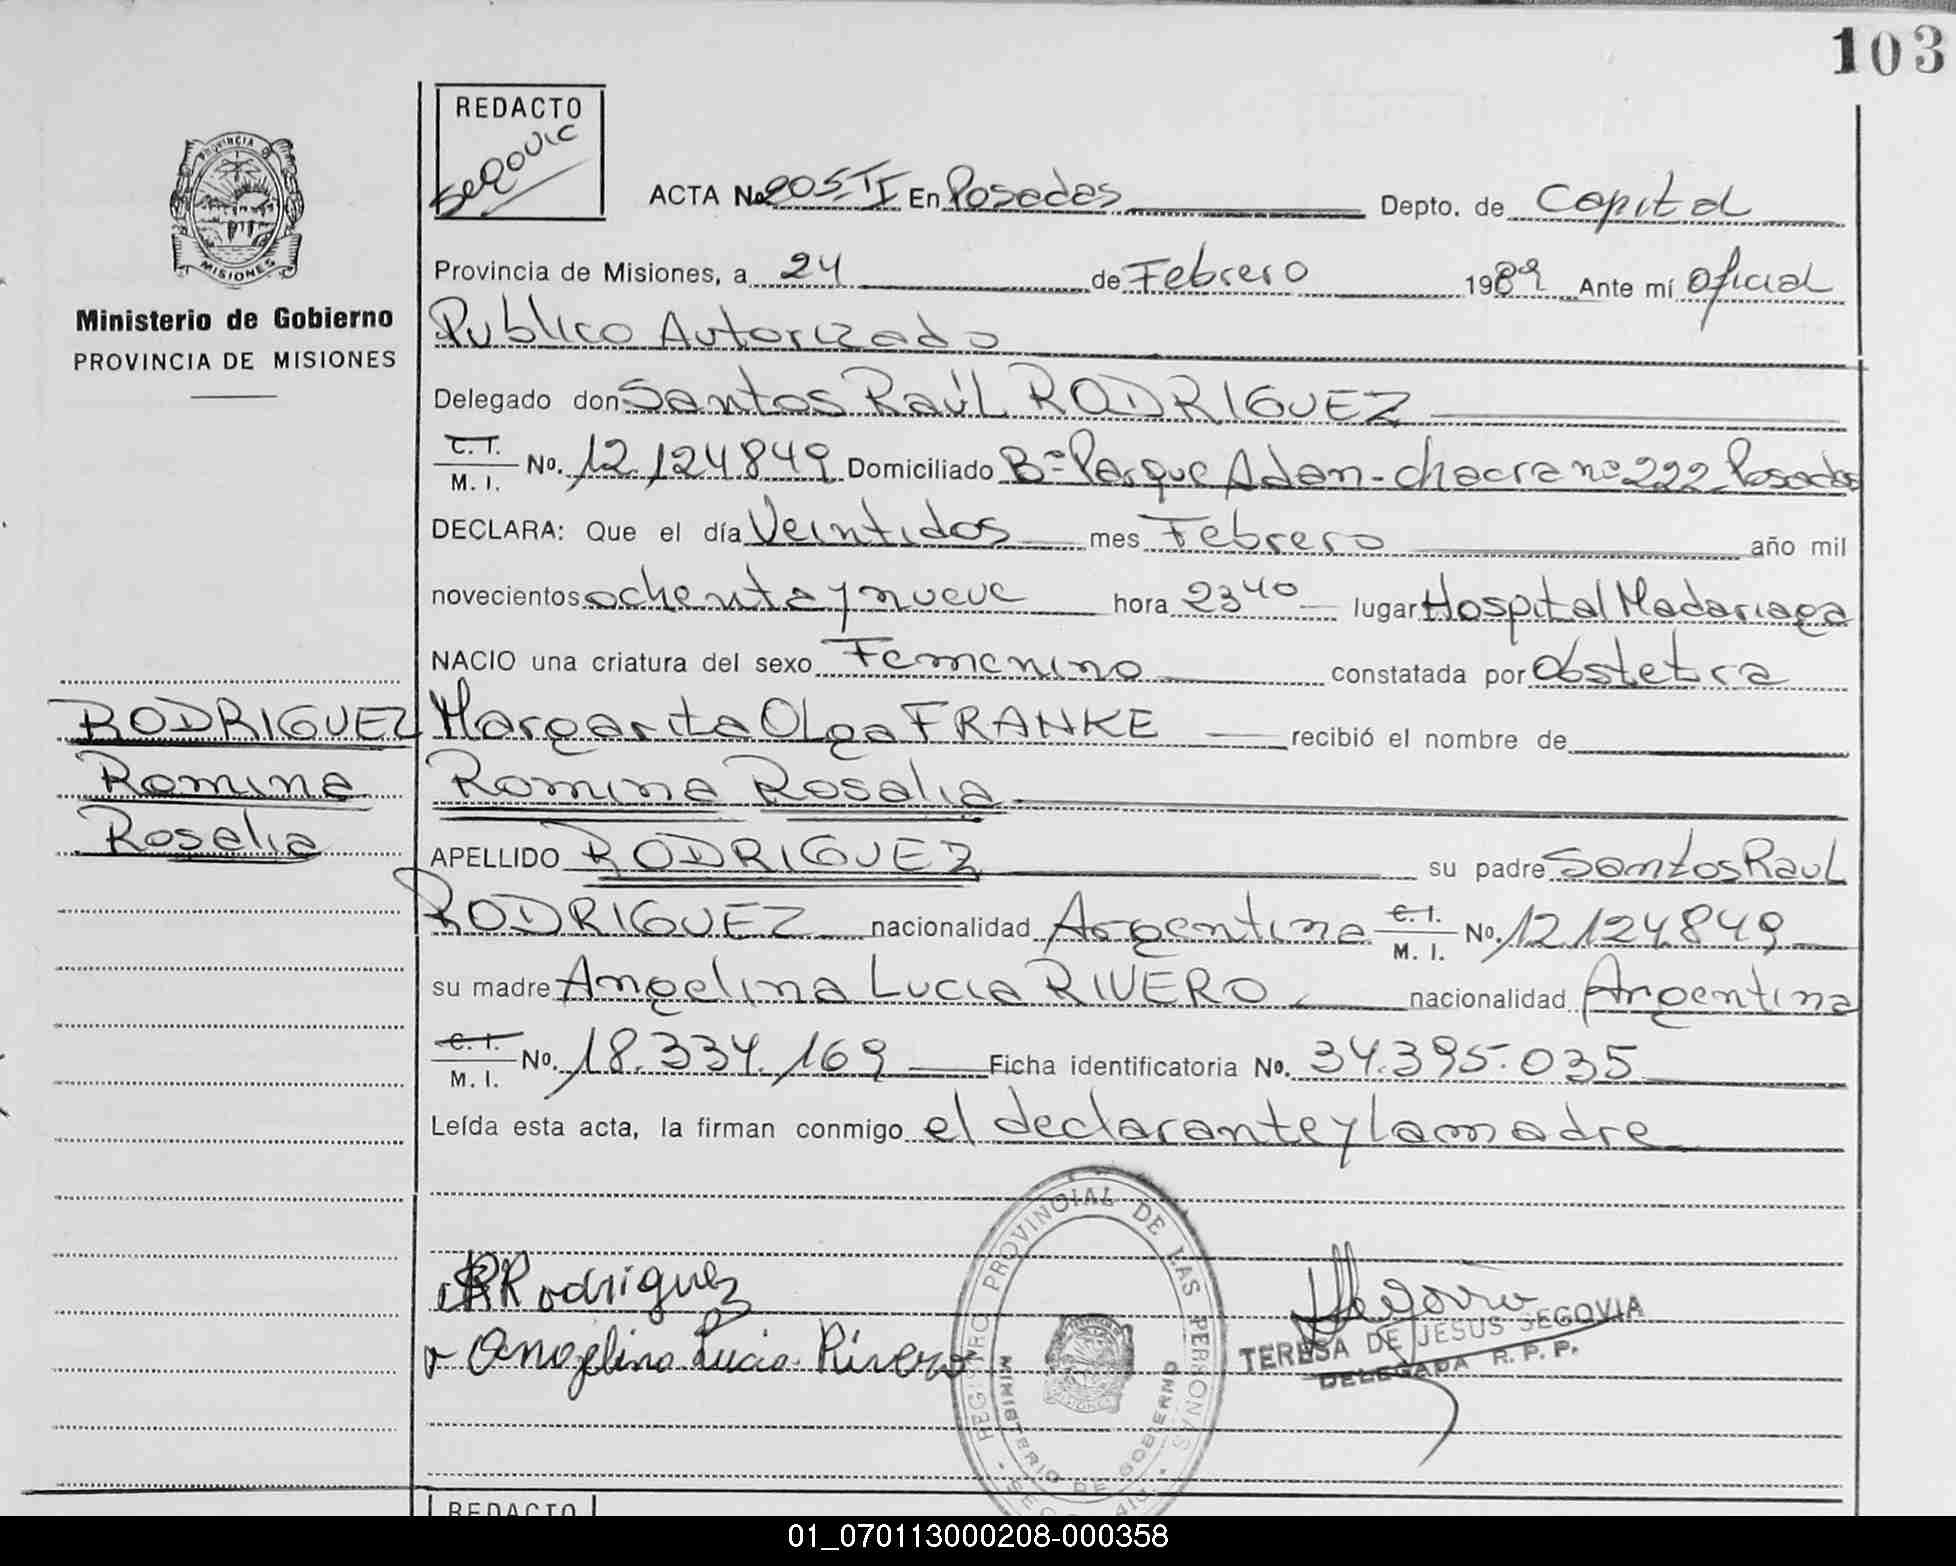 103
REDACTO
Segovia
PROVINCIA DE
MISIONES
Ministerio de Gobierno
PROVINCIA DE MISIONES
ACTA No. 205 TI En Posadas Depto. de Capital
Provincia de Misiones, a 24 de Febrero 1989 Ante mí Oficial
Publico Autorizado
Delegado don Santos Raúl RODRIGUEZ
C. I.
M. I. No. 12.124.849 Domiciliado Bº Parque Adam - chacra nº 222 Posadas
DECLARA: Que el día Veintidos mes Febrero año mil
novecientos ochenta y nueve hora 2340 lugar Hospital Madariaga
NACIO una criatura del sexo Femenino constatada por Obstetra
Margarita Olga FRANKE recibió el nombre de
Romina Rosalia
RODRIGUEZ
Romina
Rosalia
APELLIDO RODRIGUEZ su padre Santos Raul
RODRIGUEZ nacionalidad Argentina C. I.
M. I. No. 12.124.849
su madre Angelina Lucia RIVERO nacionalidad Argentina
C. I.
M. I. No. 18.334.169 Ficha identificatoria No. 34.395.035
Leída esta acta, la firman conmigo el declarante y la madre
Rodriguez
Angelina Lucia Rivero
REGISTRO PROVINCIAL DE LAS PERSONAS
MINISTERIO DE GOBIERNO
Segovia
TERESA DE JESUS SEGOVIA
DELEGADA R. P. P.
REDACTO
01_070113000208-000358